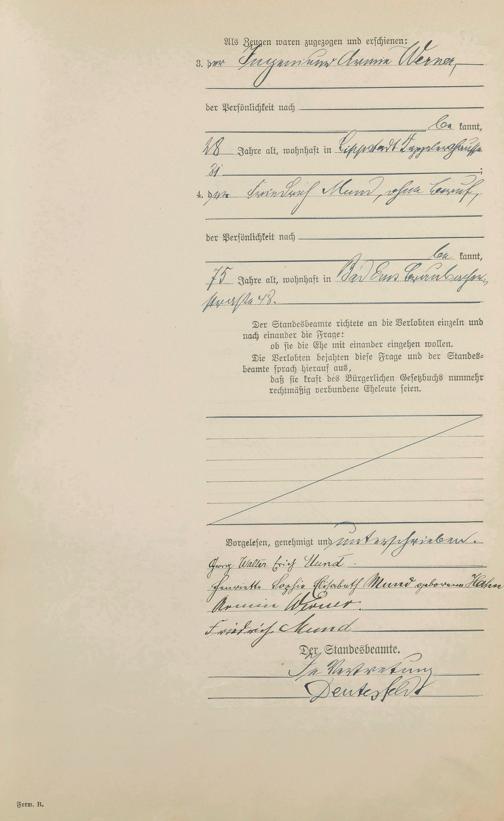 Als Zeugen waren zugezogen und erschienen:
3. der Ingenieur Armin Werner,
der Persönlichkeit nach
be kannt,
28 Jahre alt, wohnhaft in Lippstadt
31 ;
4. der Friedrich Mund, ohne Beruf,
der Persönlichkeit nach
be kannt,
75 Jahre alt, wohnhaft in Bad Ems
straße 48.
Der Standesbeamte richtete an die Verlobten einzeln und
nach einander die Frage:
ob sie die Ehe mit einander eingehen wollen.
Die Verlobten bejahten diese Frage und der Standes-
beamte sprach hierauf aus,
daß sie kraft des Bürgerlichen Gesetzbuchs nunmehr
rechtmäßig verbundene Eheleute seien.
Vorgelesen, genehmigt und unterschrieben.
Georg Walter Erich Mund.
Henriette Sophie Elisabeth Mund geborene
Armin Werner.
Friedrich Mund
Der Standesbeamte.
In Vertretung
Form. B.